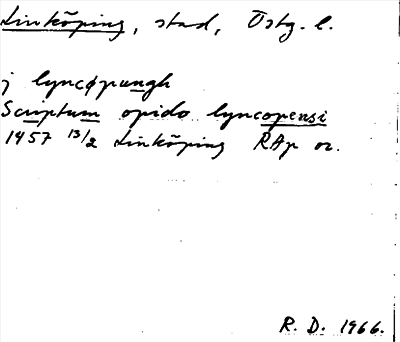 Linköping, stad, Östg. l.
j lyncøpungh
Scriptum opido lyncopensi
1457 13/2 Linköping RAp or.
R. D. 1966.